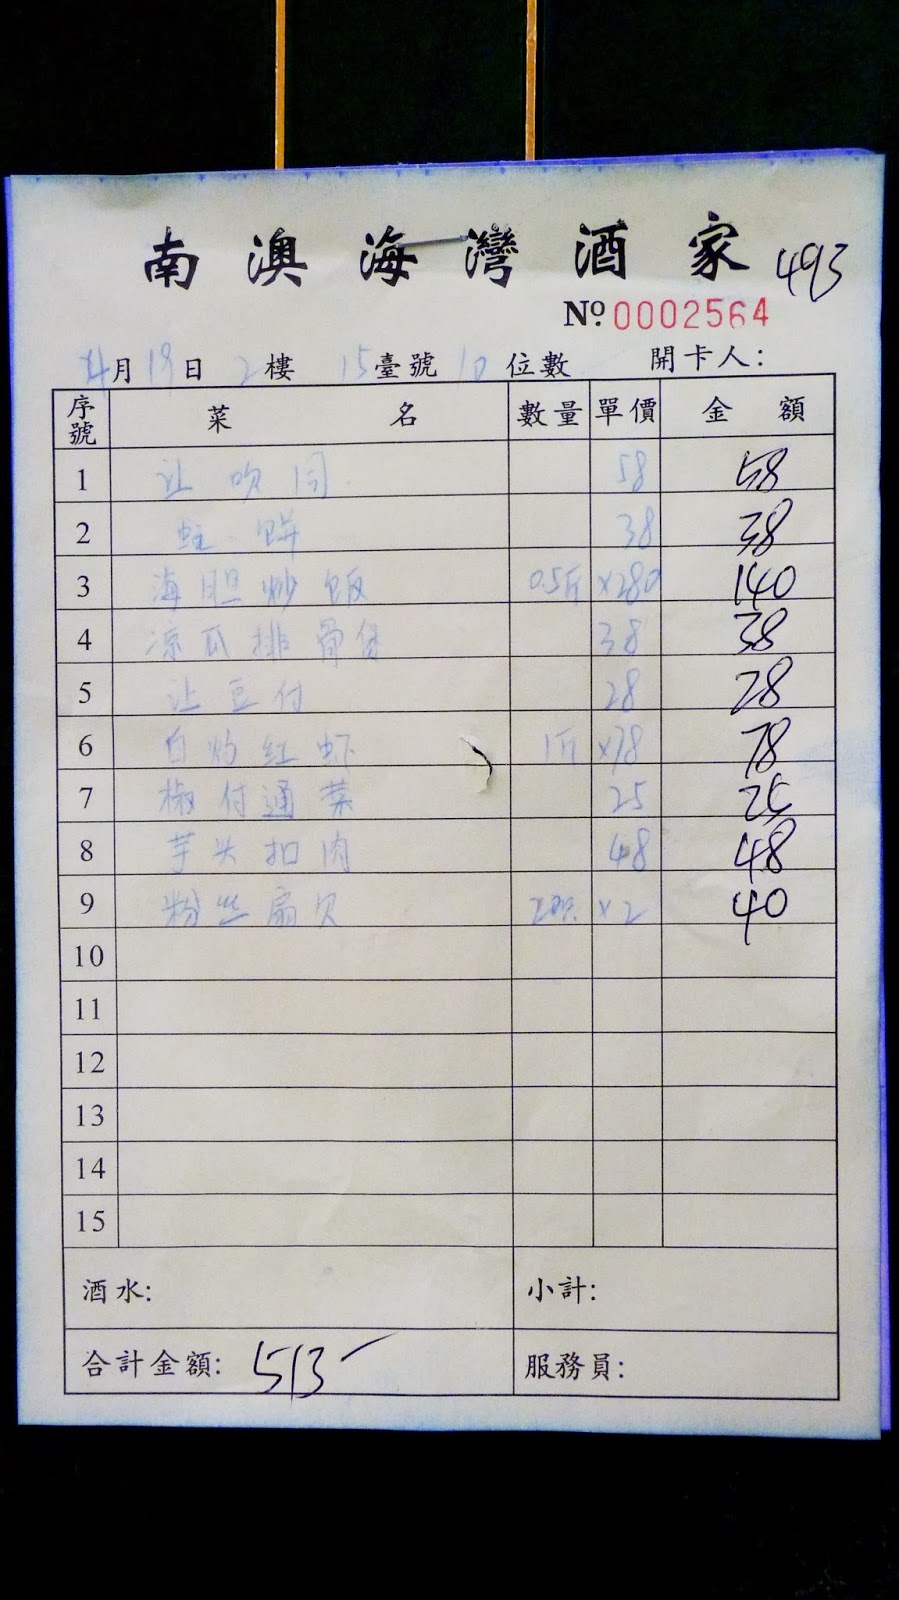 南澳海灣酒家 493
Nº 0002564
4月19日 2樓 15臺號 10位數 開卡人:
序號 菜名 數量 單價 金額
1 让吹同 58 58
2 蚝餅 38 38
3 海胆炒飯 0.5斤 ×280 140
4 凉瓜排骨煲 38 38
5 让豆付 28 28
6 白灼红虾 1斤 ×78 78
7 椒付通菜 25 25
8 芋头扣肉 48 48
9 粉丝扇贝 40
10
11
12
13
14
15
酒水: 小計:
合計金額: 513 服務員: